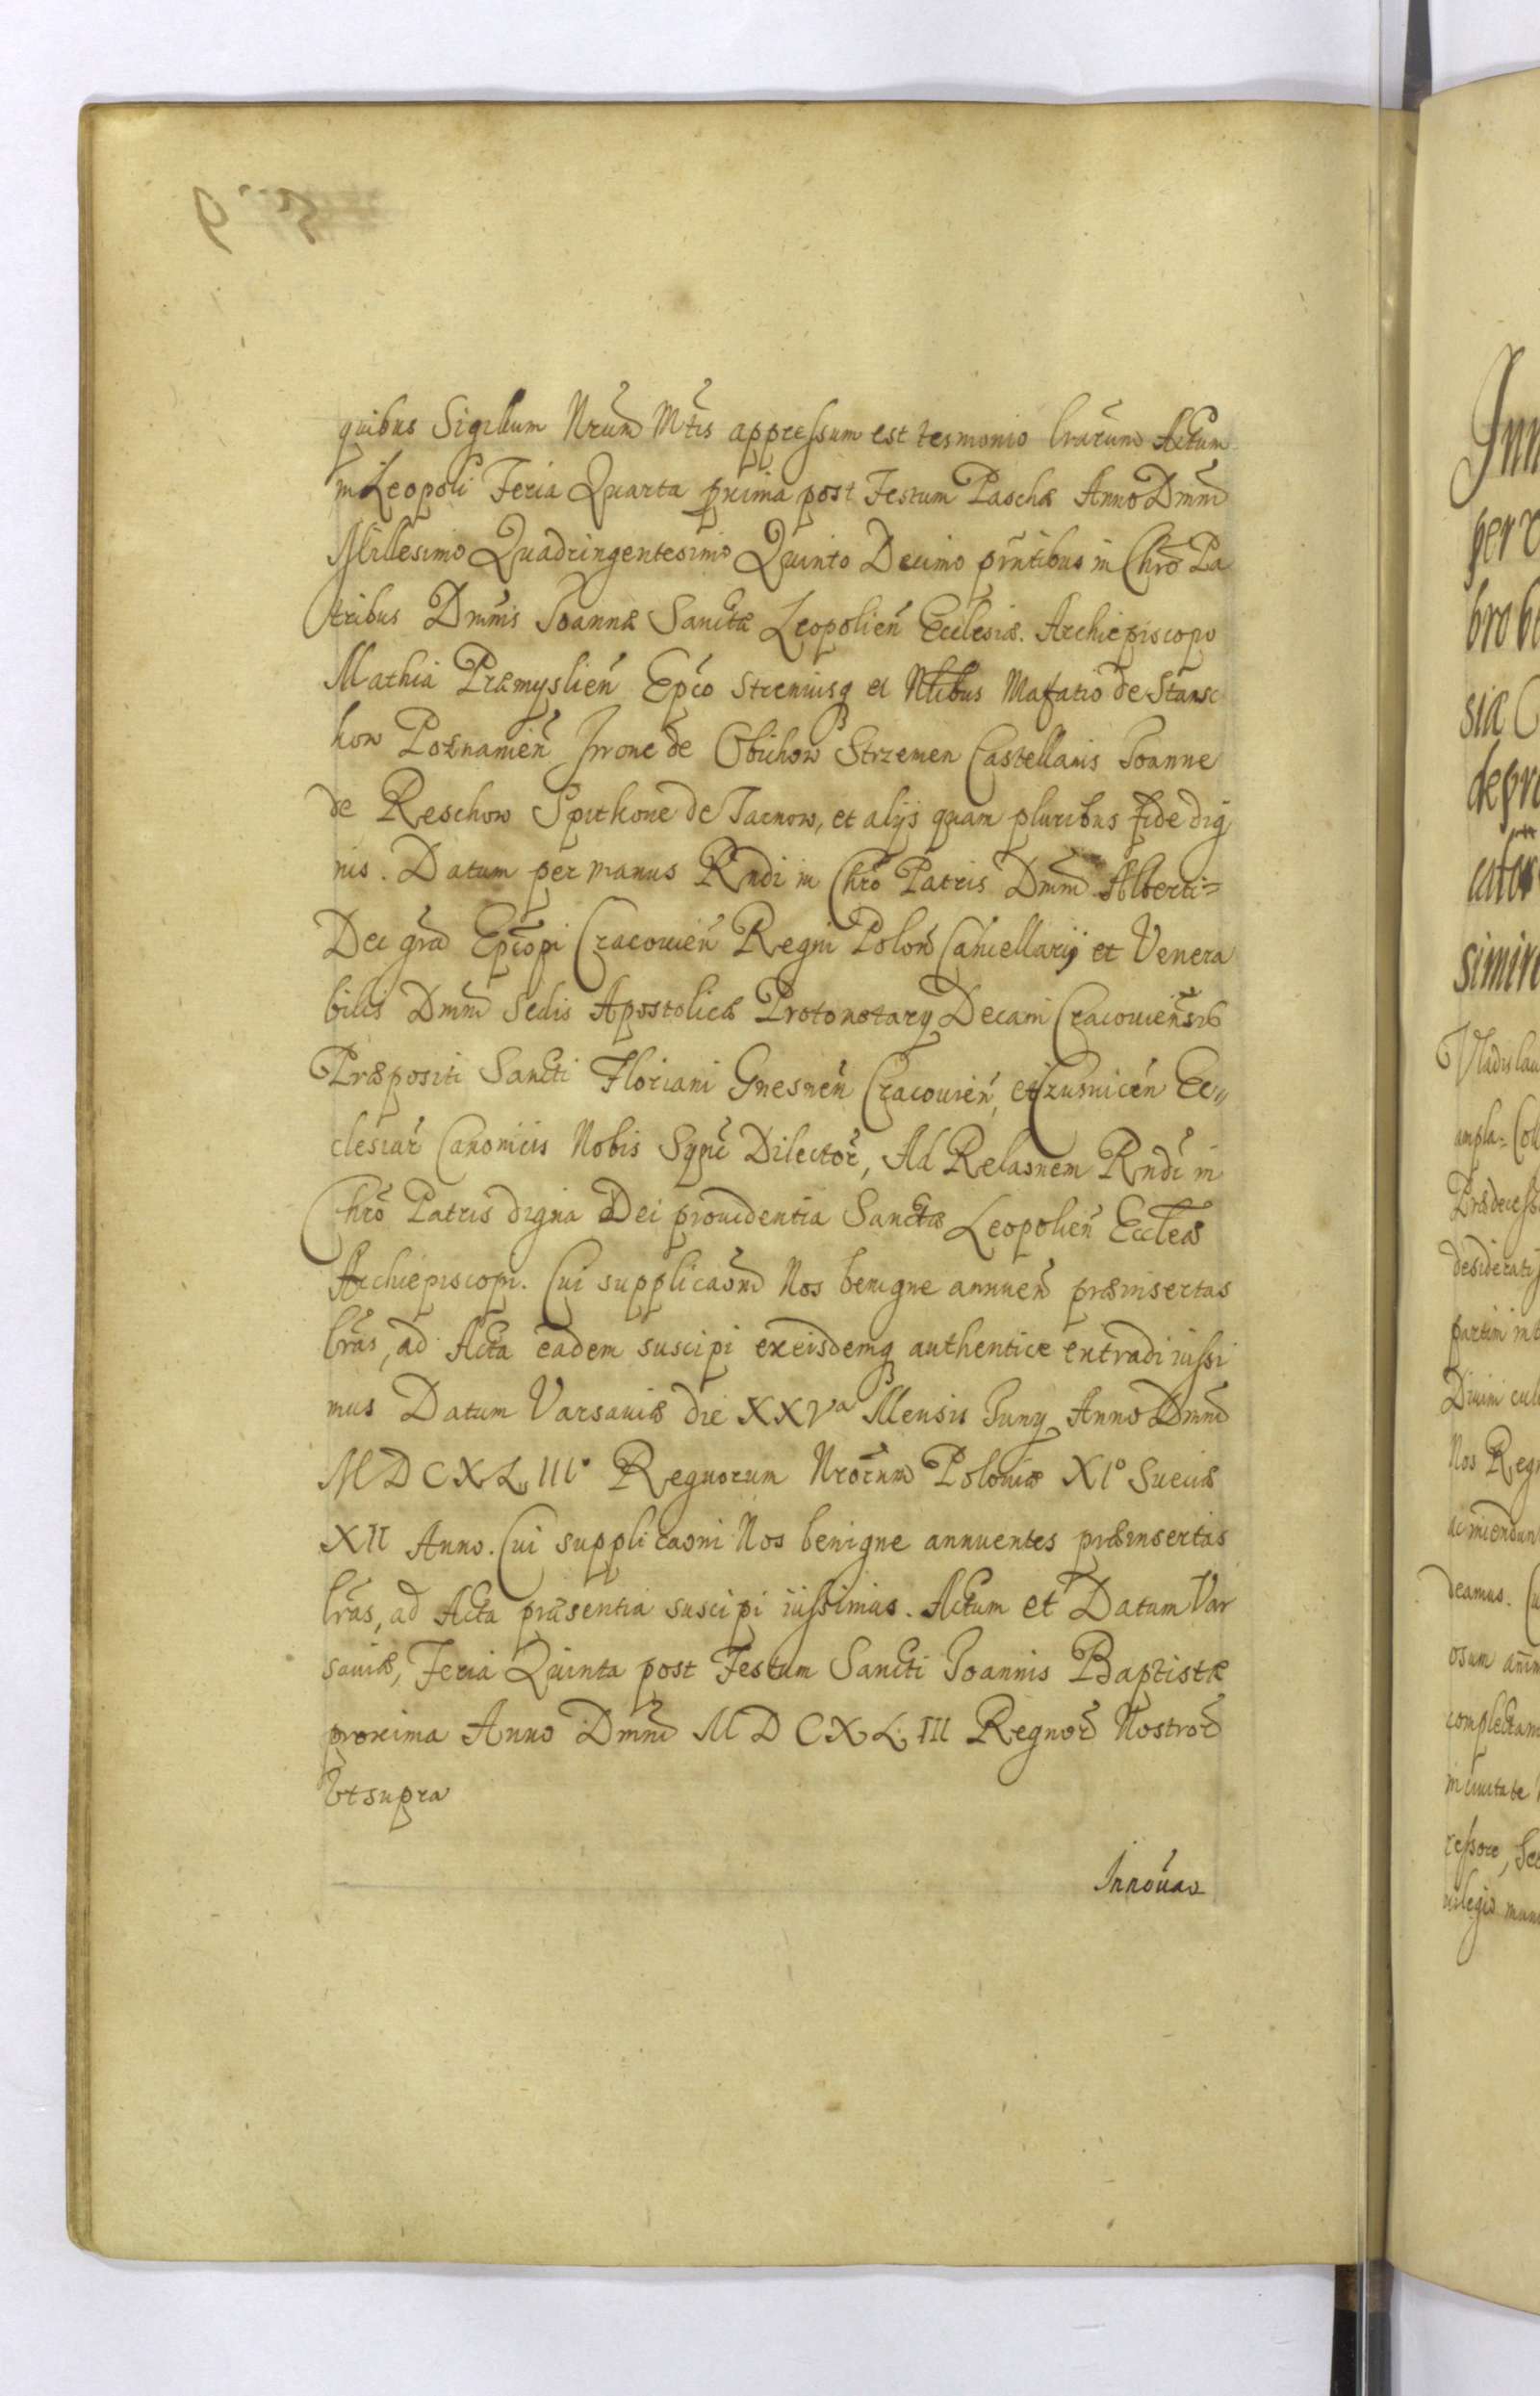 quibus Sigillum Nrum Mtis appressum est tesmonio lrarum Actum
in Leopoli Feria Quarta prima post Festum Paschæ Anno Dnni
Millesimo Quadringentesimo Quinto Decimo pntibus in Chro Pa
tribus Dnnis Joanne Sanctæ Leopolien Ecclesiæ. Archiepiscopo
Mathia Præmyslien Epco strenuisq et Nlibus Mafatio de Stansc
how Poznamien Jrrone de Obichow Strzemen Castellanis Joanne
de Reschow Spitkone de Tarnow, et alijs quam pluribus fide dig
nis. Datum per manus Rndi in Chro Patris Dnni Alberti=
Dei gra Epcopi Cracouien Regni Polon Cancellarij et Venera
bilis Dnni Sedis Apostolicæ Protonotary Decani Cracouiensis
Præpositi Sancti Floriani Gnesnen Cracouien, et Crusnicen Ec„
clesiar Canonicis Nobis Sync Dilector, Ad Relaonem Rndi in
Chro Patris digna Dei prouidentia Sanctæ Leopolien Eccleæ
Archiepiscopi. Cui supplicaoni Nos benigne annuen præinsertas
lras, ad Acta eadem suscipi exeisdemq authentice extradi iussi
mus Datum Varsauiæ die XXVa Mensis Juny Anno Dnni
MDCXLIII° Regnorum Nrorum Poloniæ XI° Sueciæ
XII Anno. Cui supplicaoni Nos benigne annuentes præinsertas
lras, ad Acta præsentia suscipi iussimus. Actum et Datum Var
sauiæ, Feria Quinta post Festum Sancti Joannis Baptistæ
proxima Anno Dnni MDCXLIII Regnor Nostror
Vt supra
Innouao